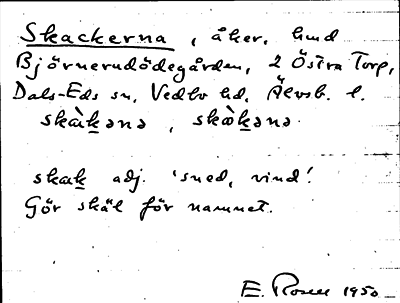 Skackerna, åker, hmd
Björnerudödegården, 2 Östra Torp,
Dals-Eds sn, Vedbo hd, Älvsb. l.
skàk̲ənə, skàk̲ənə.
skak̲ adj. 'sned, vind'.
Gör skäl för namnet.
E. Rosell 1950